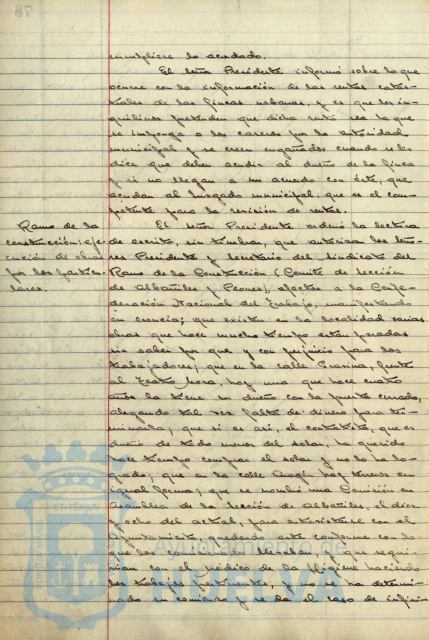 cumpliere lo acordado.
El señor Presidente informó sobre lo que
ocurre con la información de las rentas catas-
trales de las fincas urbanas, y es que los in-
quilinos pretenden que dicha renta sea la que
se imponga a los caseros por la autoridad
municipal y se creen engañados cuando se les
dice que deben acudir al dueño de la finca
y si no llegan a un acuerdo con éste, que
acudan al Juzgado municipal, que es el com-
petente para la revisión de rentas.
Ramo de la
construcción: eje-
cución de obras
por los particu-
lares.
El señor Presidente ordenó la lectura
de escrito, sin timbrar, que autorizan los seño-
res Presidente y Secretario del Sindicato del
Ramo de la Construcción (Comité de Sección
de Albañiles y Peones), afectos a la Confe-
deración Nacional del Trabajo, manifestando
en esencia; que existen en la localidad varias
obras que hace mucho tiempo están paradas
sin saber por que y con perjuicio para los
trabajadores; que en la calle Gravina, frente
al Teatro Mora, hay una que hace cuatro
años la tiene su dueño con la puerta cerrada,
alegando tal vez falta de dinero para ter-
minarla, que si es así, el contratista, que es
dueño de todo menos del solar, ha querido
hace tiempo comprar el solar y no lo ha lo-
grado, que en la calle Aragón hay en
igual forma; que se nombró una Comisión en
Asamblea de la Sección de Albañiles, el diez
y ocho del actual, para entrevistarse con el
Ayuntamiento, quedando este conforme con lo
que los comisionados llevaban y que segui-
rían con el médico de la Higiene haciendo
los trabajos pertinentes, y no se ha determi-
nado su comienzo y se da el caso de infini-
Ayuntamiento de
HUELVA